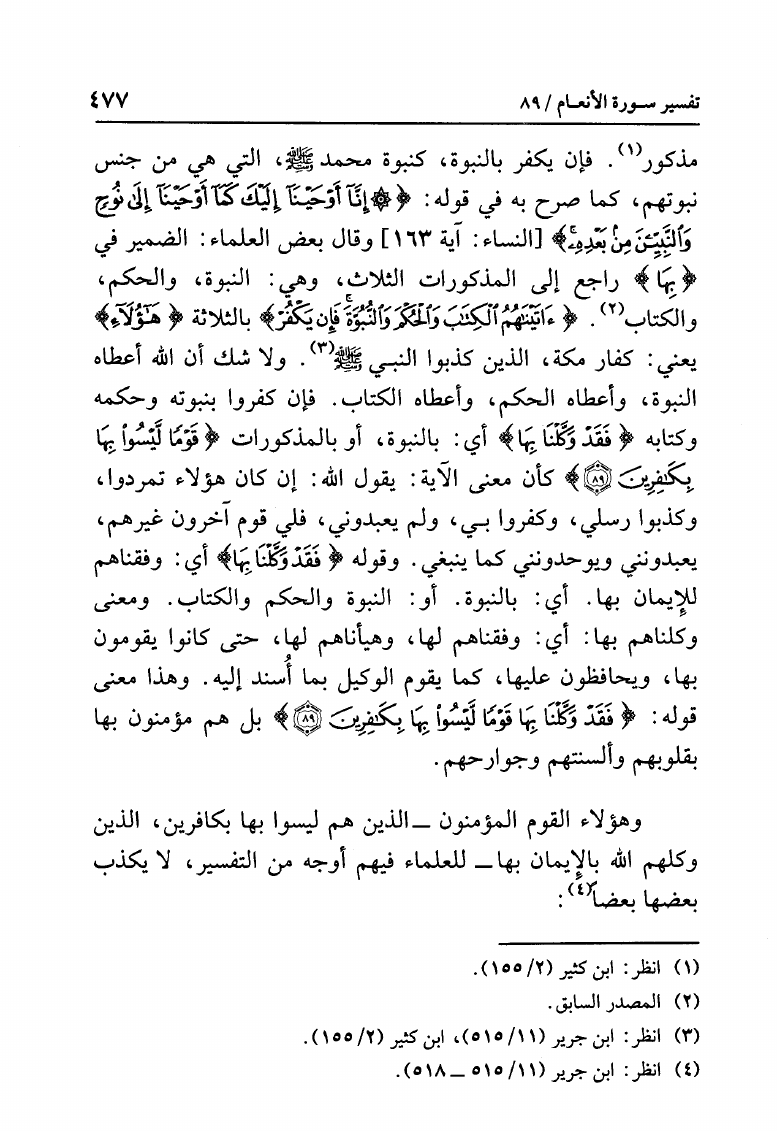 تفسير سورة الأنعام / ٨٩
٤٧٧
مذكور(١). فإن يكفر بالنبوة، كنبوة محمد ﷺ، التي هي من جنس
نبوتهم، كما صرح به في قوله: ﴿۞ إِنَّآ أَوْحَيْنَآ إِلَيْكَ كَمَآ أَوْحَيْنَآ إِلَىٰ نُوحٍ
وَٱلنَّبِيِّـۧنَ مِنۢ بَعْدِهِۦ﴾ [النساء: آية ١٦٣] وقال بعض العلماء: الضمير في
﴿بِهَا﴾ راجع إلى المذكورات الثلاث، وهي: النبوة، والحكم،
والكتاب(٢). ﴿ءَاتَيْنَٰهُمُ ٱلْكِتَٰبَ وَٱلْحُكْمَ وَٱلنُّبُوَّةَ ۚ فَإِن يَكْفُرْ﴾ بالثلاثة ﴿هَٰٓؤُلَآءِ﴾
يعني: كفار مكة، الذين كذبوا النبي ﷺ(٣). ولا شك أن الله أعطاه
النبوة، وأعطاه الحكم، وأعطاه الكتاب. فإن كفروا بنبوته وحكمه
وكتابه ﴿فَقَدْ وَكَّلْنَا بِهَا﴾ أي: بالنبوة، أو بالمذكورات ﴿قَوْمًا لَّيْسُوا۟ بِهَا
بِكَٰفِرِينَ ۝٨٩﴾ كأن معنى الآية: يقول الله: إن كان هؤلاء تمردوا،
وكذبوا رسلي، وكفروا بي، ولم يعبدوني، فلي قوم آخرون غيرهم،
يعبدونني ويوحدونني كما ينبغي. وقوله ﴿فَقَدْ وَكَّلْنَا بِهَا﴾ أي: وفقناهم
للإيمان بها. أي: بالنبوة. أو: النبوة والحكم والكتاب. ومعنى
وكلناهم بها: أي: وفقناهم لها، وهيأناهم لها، حتى كانوا يقومون
بها، ويحافظون عليها، كما يقوم الوكيل بما أُسند إليه. وهذا معنى
قوله: ﴿فَقَدْ وَكَّلْنَا بِهَا قَوْمًا لَّيْسُوا۟ بِهَا بِكَٰفِرِينَ ۝٨٩﴾ بل هم مؤمنون بها
بقلوبهم وألسنتهم وجوارحهم.
وهؤلاء القوم المؤمنون ــ الذين هم ليسوا بها بكافرين، الذين
وكلهم الله بالإيمان بها ــ للعلماء فيهم أوجه من التفسير، لا يكذب
بعضها بعضاً(٤):
(١) انظر: ابن كثير (٢/ ١٥٥).
(٢) المصدر السابق.
(٣) انظر: ابن جرير (١١/ ٥١٥)، ابن كثير (٢/ ١٥٥).
(٤) انظر: ابن جرير (١١/ ٥١٥ ــ ٥١٨).